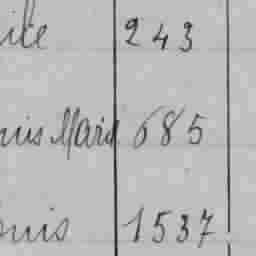 ile 243
uis Marid 685
ouis 1537